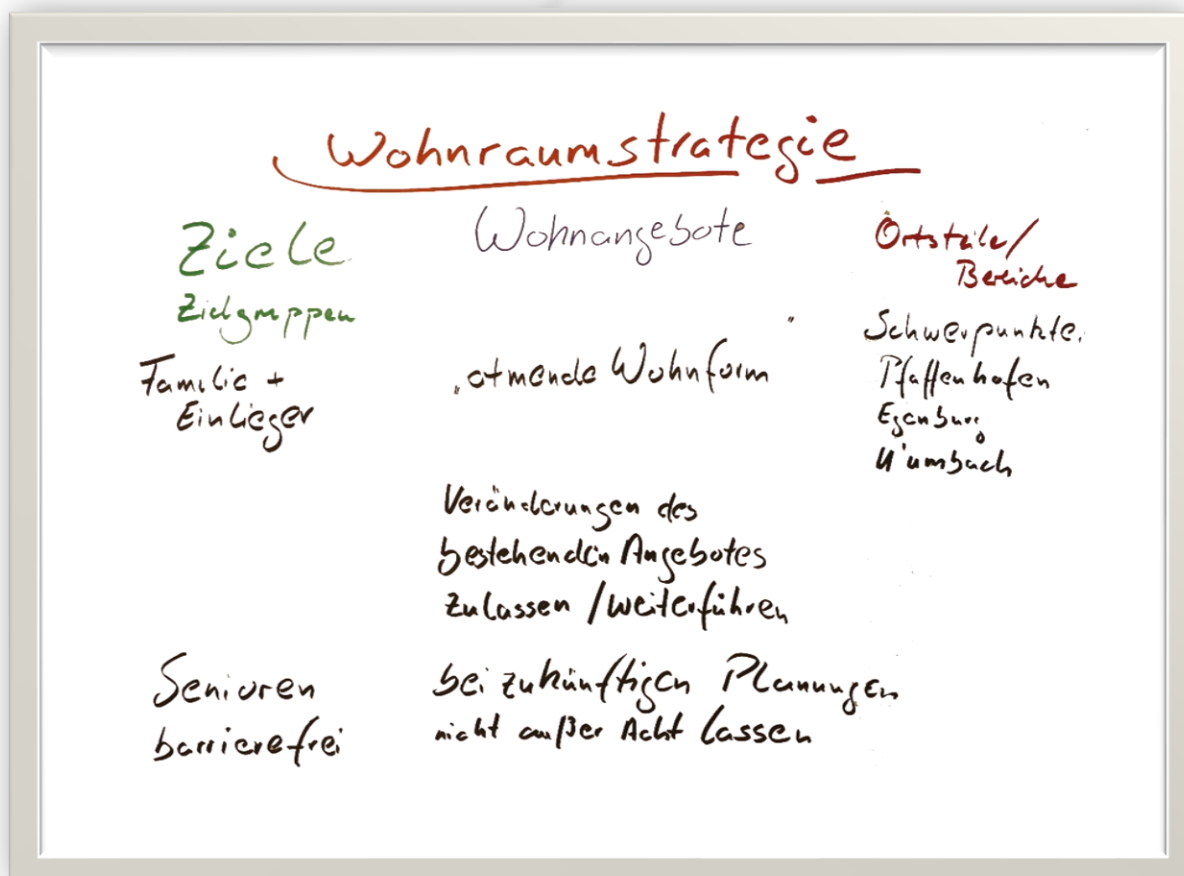 Wohnraumstrategie
Ziele
Zielgruppen
Familie +
Einlieger
Senioren
barrierefrei
Wohnangebote
"atmende Wohnform"
Veränderungen des
bestehenden Angebotes
zulassen / weiterführen
bei zukünftigen Planungen
nicht außer Acht lassen
Ortsteile/
Bereiche
Schwerpunkte.
Pfaffenhofen
Egenburg
U'umbach